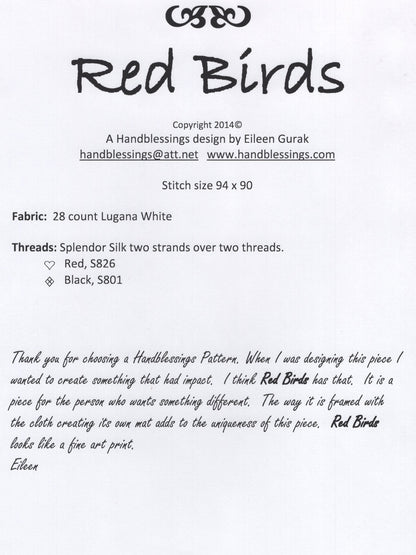 Red Birds
Copyright 2014©
A Handblessings design by Eileen Gurak
handblessings@att.net www.handblessings.com
Stitch size 94 x 90
Fabric: 28 count Lugana White
Threads: Splendor Silk two strands over two threads.
Red, S826
Black, S801
Thank you for choosing a Handblessings Pattern. When I was designing this piece I
wanted to create something that had impact. I think Red Birds has that. It is a
piece for the person who wants something different. The way it is framed with
the cloth creating its own mat adds to the uniqueness of this piece. Red Birds
looks like a fine art print.
Eileen